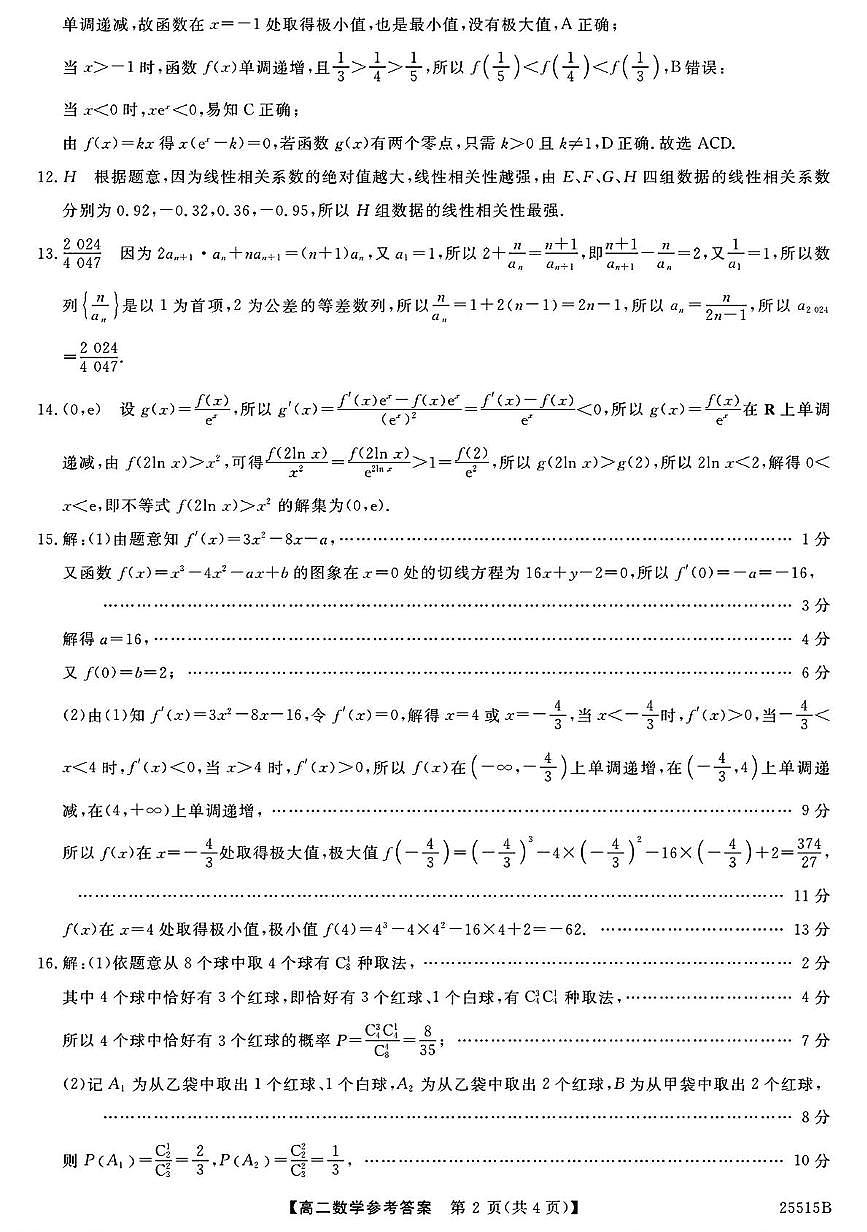 单调递减,故函数在 x=-1 处取得极小值,也是最小值,没有极大值,A 正确;
当 x>-1 时,函数 f(x)单调递增,且1/3>1/4>1/5,所以 f(1/5)<f(1/4)<f(1/3),B 错误;
当 x<0 时,xeˣ<0,易知 C 正确;
由 f(x)=kx 得 x(eˣ-k)=0,若函数 g(x)有两个零点,只需 k>0 且 k≠1,D 正确.故选 ACD.
12. H 根据题意,因为线性相关系数的绝对值越大,线性相关性越强,由 E、F、G、H 四组数据的线性相关系数
分别为 0.92,-0.32,0.36,-0.95,所以 H 组数据的线性相关性最强.
13. 2 024/4 047 因为 2aₙ₊₁·aₙ+naₙ₊₁=(n+1)aₙ,又 a₁=1,所以 2+n/aₙ=(n+1)/aₙ₊₁,即(n+1)/aₙ₊₁-n/aₙ=2,又1/a₁=1,所以数
列{n/aₙ}是以 1 为首项,2 为公差的等差数列,所以n/aₙ=1+2(n-1)=2n-1,所以 aₙ=n/(2n-1),所以 a₂ ₀₂₄
=2 024/4 047.
14. (0,e) 设 g(x)=f(x)/eˣ,所以 g′(x)=(f′(x)eˣ-f(x)eˣ)/(eˣ)²=(f′(x)-f(x))/eˣ<0,所以 g(x)=f(x)/eˣ在 R 上单调
递减,由 f(2ln x)>x²,可得f(2ln x)/x²=f(2ln x)/e^(2ln x)>1=f(2)/e²,所以 g(2ln x)>g(2),所以 2ln x<2,解得 0<
x<e,即不等式 f(2ln x)>x² 的解集为(0,e).
15. 解:(1)由题意知 f′(x)=3x²-8x-a,………… 1 分
又函数 f(x)=x³-4x²-ax+b 的图象在 x=0 处的切线方程为 16x+y-2=0,所以 f′(0)=-a=-16,
………… 3 分
解得 a=16,………… 4 分
又 f(0)=b=2; ………… 6 分
(2)由(1)知 f′(x)=3x²-8x-16,令 f′(x)=0,解得 x=4 或 x=-4/3,当 x<-4/3时,f′(x)>0,当-4/3<
x<4 时,f′(x)<0,当 x>4 时,f′(x)>0,所以 f(x)在(-∞,-4/3)上单调递增,在(-4/3,4)上单调递
减,在(4,+∞)上单调递增,………… 9 分
所以 f(x)在 x=-4/3处取得极大值,极大值 f(-4/3)=(-4/3)³-4×(-4/3)²-16×(-4/3)+2=374/27,
………… 11 分
f(x)在 x=4 处取得极小值,极小值 f(4)=4³-4×4²-16×4+2=-62. ………… 13 分
16. 解:(1)依题意从 8 个球中取 4 个球有 C₈⁴ 种取法,………… 2 分
其中 4 个球中恰好有 3 个红球,即恰好有 3 个红球、1 个白球,有 C₄³C₄¹ 种取法,………… 4 分
所以 4 个球中恰好有 3 个红球的概率 P=C₄³C₄¹/C₈⁴=8/35; ………… 7 分
(2)记 A₁ 为从乙袋中取出 1 个红球、1 个白球,A₂ 为从乙袋中取出 2 个红球,B 为从甲袋中取出 2 个红球,
………… 8 分
则 P(A₁)=C₂¹/C₃²=2/3,P(A₂)=C₂²/C₃²=1/3,………… 10 分
【高二数学参考答案 第 2 页(共 4 页)】 25515B